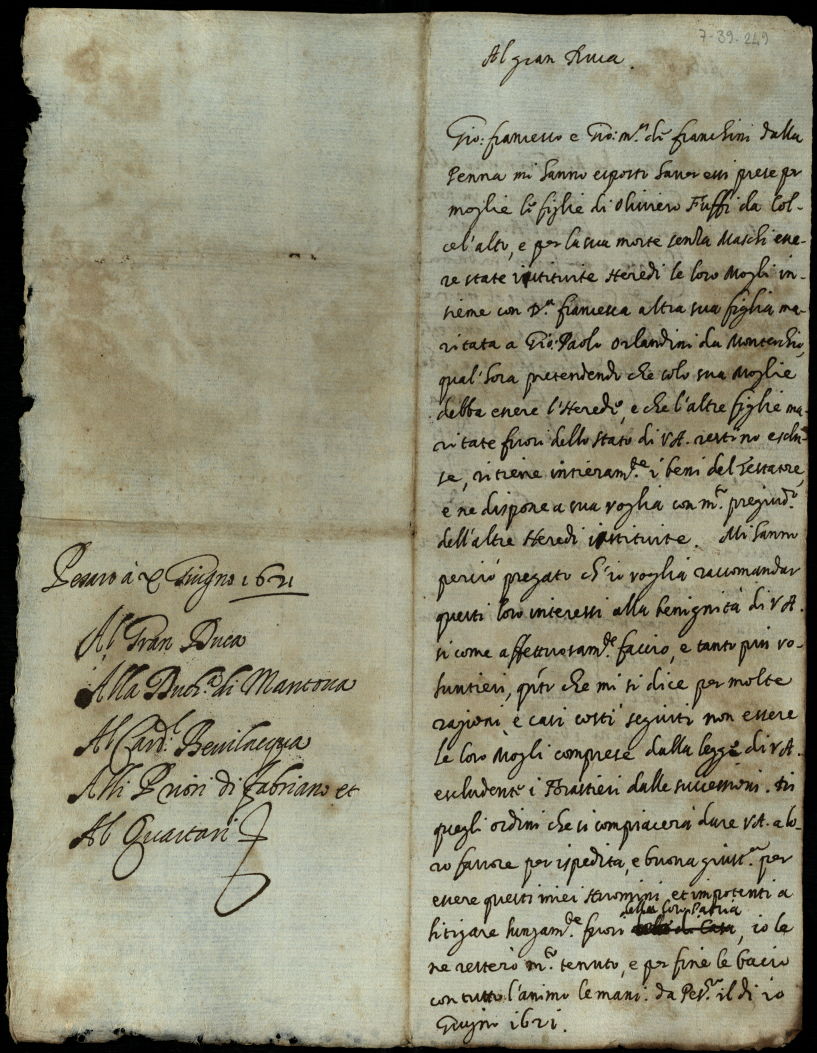 Pesaro à X Giugno 1621
Al Gran Duca
Alla Duch.ª di Mantova
Al Card.l Bevilacqua
Alli Priori di Fabriano et
Al Quartari
7-39-249
Al gran Duca.
Gio: francesco e Gio: m.ª de franchini dalla
Penna mi hanno esposto haver essi prese per
moglie le figlie di Oliviero Fuffi da Col-
cel'alto, e per la sua morte senza Maschi esse-
re state instituite Heredi le loro Mogli in-
sieme con D.ª francesca altra sua figlia ma-
ritata a Gio: Paolo Orlandini da Monterchio,
qual'hora pretendendo che solo sua Moglie
debba essere l'Herede, e che l'altre figlie ma-
ritate fuori dello stato di V.A. restino esclu-
se, ritiene intieram.te i beni del Testatore,
e ne dispone a sua voglia con m.to pregiud.o
dell'altre Heredi instituite. Mi hanno
perciò pregato ch'io voglia raccomandar
questi loro interessi alla benignità di V.A.
si come affettuosam.te faccio, e tanto più vo-
luntieri, q.to che mi si dice per molte
ragioni, e casi costì seguiti non essere
le loro Mogli comprese dalla legge di V.A.
escludente i Forastieri dalle successioni. Di
quegli ordini che si compiacerà dare V.A. a lo-
ro favore per ispedita, e buona giust.a per
essere questi miei huomini, et impotenti a
litigare lungam.te fuori della loro Patria, io le
ne resterò m.to tenuto, e per fine le bacio
con tutto l'animo le mani. da Pes.ro il di 10
Giugno 1621.